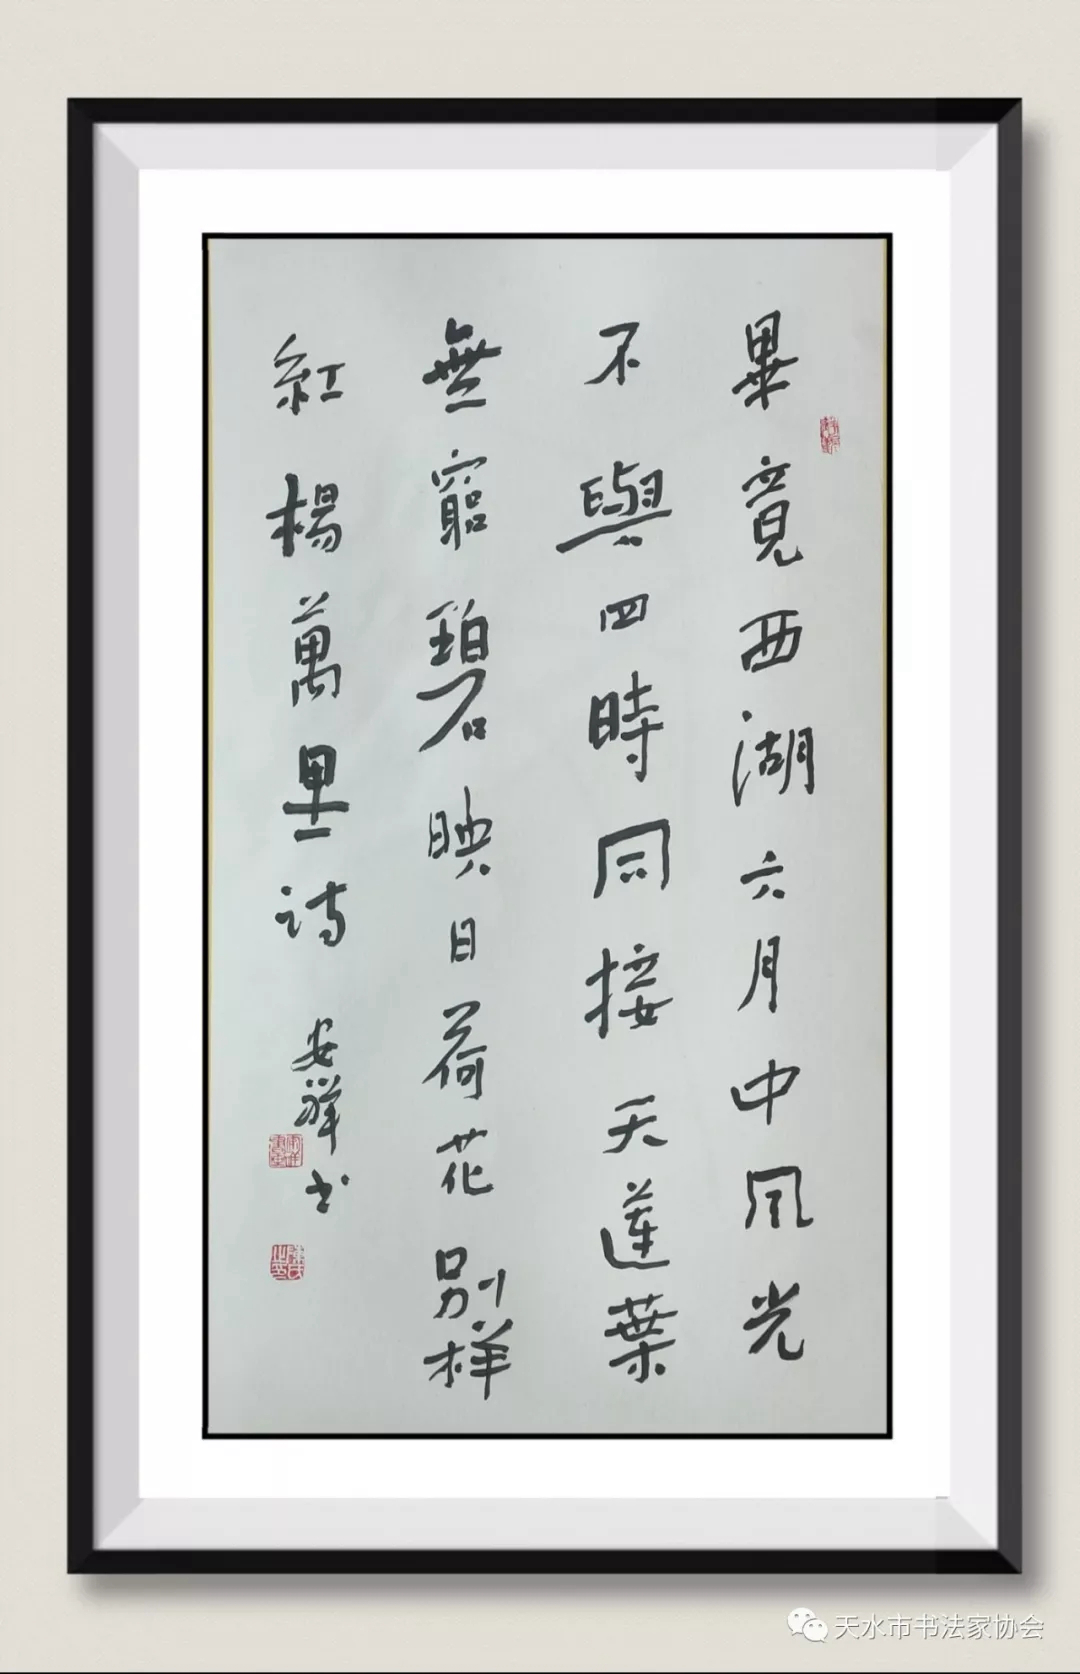 畢竟西湖六月中風光
不與四時同接天蓮葉
無窮碧映日荷花別样
紅楊萬里诗
安祥书
天水市书法家协会